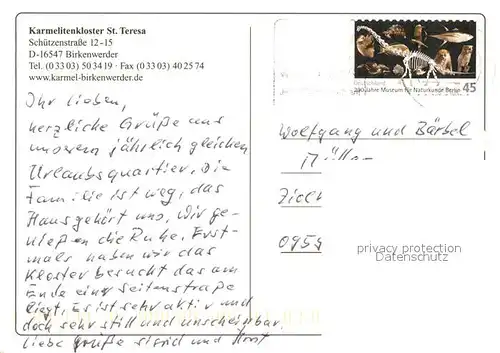 Karmelitenkloster St. Teresa
Schützenstraße 12-15
D-16547 Birkenwerder
Tel. (0 33 03) 50 34 19 · Fax (0 33 03) 40 25 74
www.karmel-birkenwerder.de
Ihr Lieben,
herzliche Grüße aus
unserem jährlich gleichen
Urlaubsquartier. Die
Familie ist weg, das
Haus gehört uns. Wir ge-
nießen die Ruhe. Erst-
mals haben wir das
Kloster besucht das am
Ende einer Seitenstraße
liegt. Es ist sehr aktiv und
doch sehr still und unscheinbar.
Liebe Grüße Sigrid und Horst
Deutschland
200 Jahre Museum für Naturkunde Berlin
45
Wolfgang und Bärbel
0959
privacy protection
Datenschutz